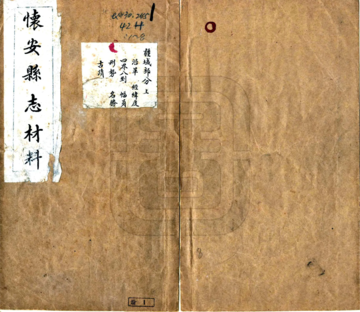 懷安縣志材料
疆域部分 上
沿革 經緯度
四至八到 幅員
形勢 名勝
古蹟